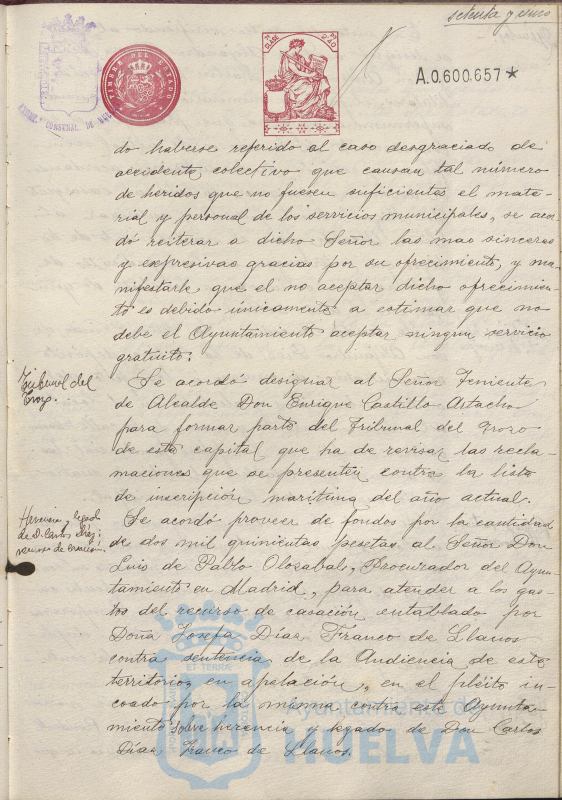 setenta y uno
TIMBRE DEL ESTADO
CLASE
A.0.600.657*
do haberse referido al caso desgraciado de
accidente colectivo que causan tal número
de heridos que no fuesen suficientes el mate-
rial y personal de los servicios municipales, se acor
dó reiterar a dicho Señor las mas sinceras
y expresivas gracias por su ofrecimiento, y ma-
nifestarle que el no aceptar dicho ofrecimien-
to es debido únicamente a estimar que no
debe el Ayuntamiento aceptar ningun servicio
gratuito.
Tribunal del
Trozo.
Se acordó designar al Señor Teniente
de Alcalde Don Enrique Castillo Astacho
para formar parte del Tribunal del Trozo
de esta capital que ha de revisar las recla-
maciones que se presenten contra la lista
de inscripción marítima del año actual.
Herencia y legado
de D. Carlos Díaz:
recurso de casación.
Se acordó proveer de fondos por la cantidad
de dos mil quinientas pesetas al Señor Don
Luis de Pablo Olozabal, Procurador del Ayun-
tamiento en Madrid, para atender a los gas-
tos del recurso de casación entablado por
Doña Josefa Díaz Franco de Llanos
contra sentencia de la Audiencia de este
territorio, en apelación, en el pléito in-
coado por la misma contra este Ayunta-
miento sobre herencia y legado de Don Carlos
Díaz Franco de Llanos.
Ayuntamiento de
HUELVA